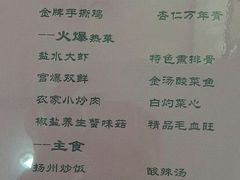 金牌手撕鸡 杏仁万年青
--火爆热菜
盐水大虾 特色熏排骨
宫爆双鲜 金汤酸菜鱼
农家小炒肉 白灼菜心
椒盐养生蟹味菇 精品毛血旺
--主食
扬州炒饭 酸辣汤